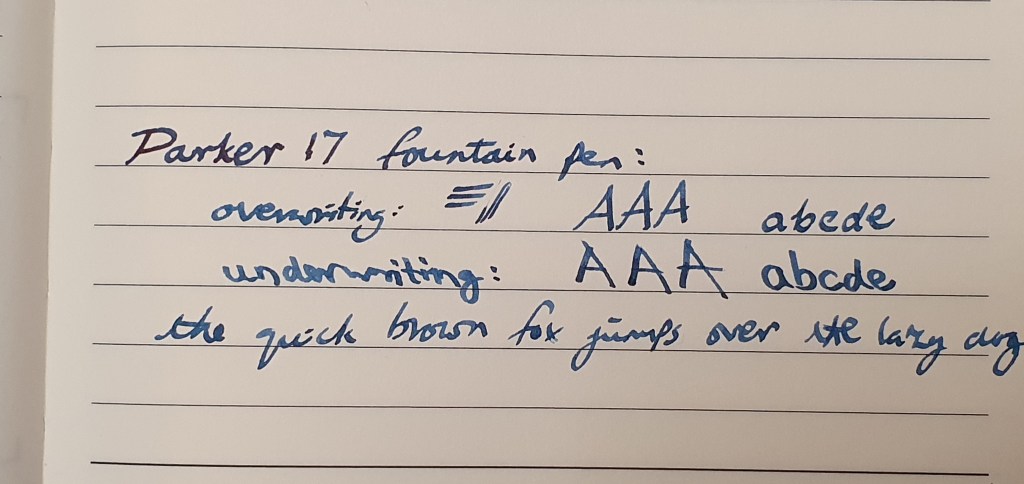 Parker 17 fountain pen:
overwriting: AAA abcde
underwriting: AAA abcde
the quick brown fox jumps over the lazy dog